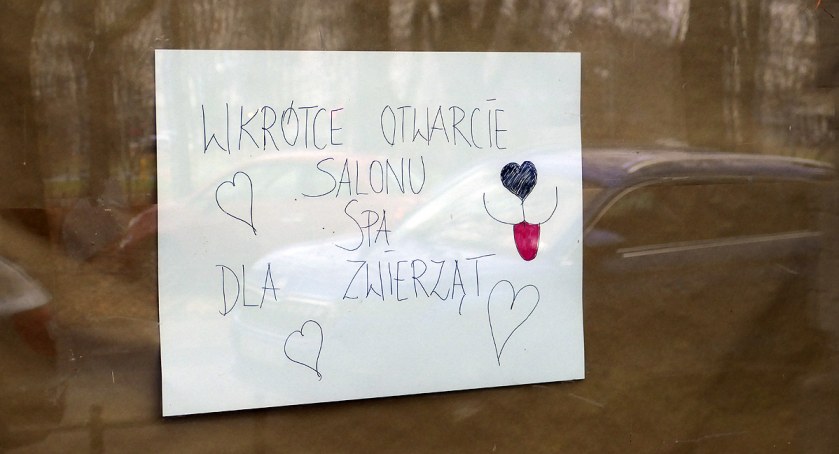 WKRÓTCE OTWARCIE
SALONU
SPA
DLA ZWIERZĄT